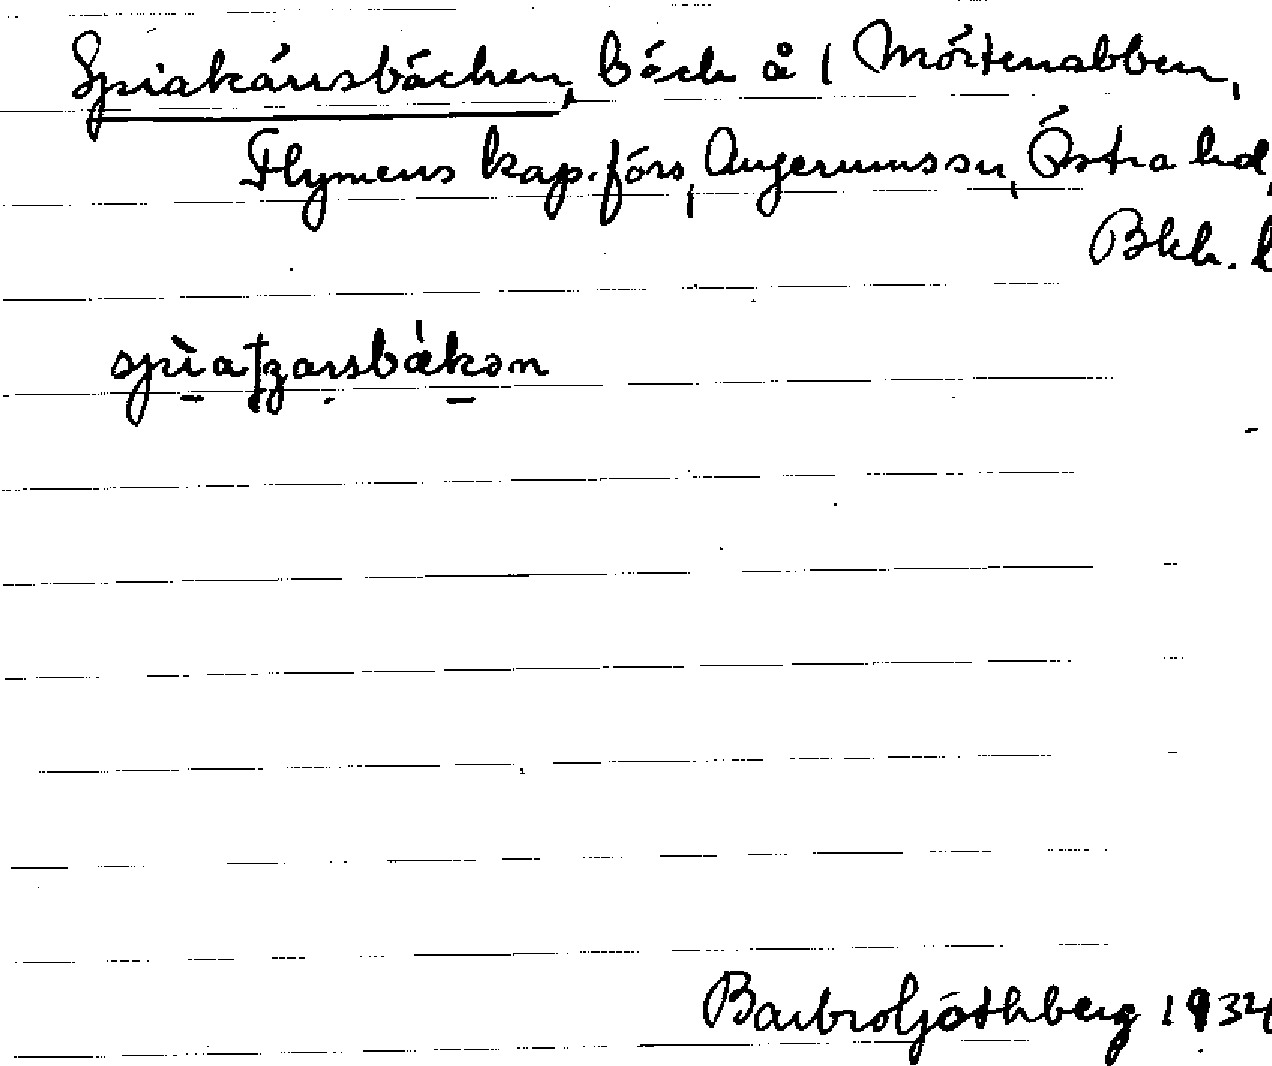 Spiakärrsbäcken, bäck å 1 Mörtenabben,
Flymens kap.förs, Augerums sn, Östra hd,
Bkh. l
spìatʒarsbǽkən
Barbro Göthberg 1934